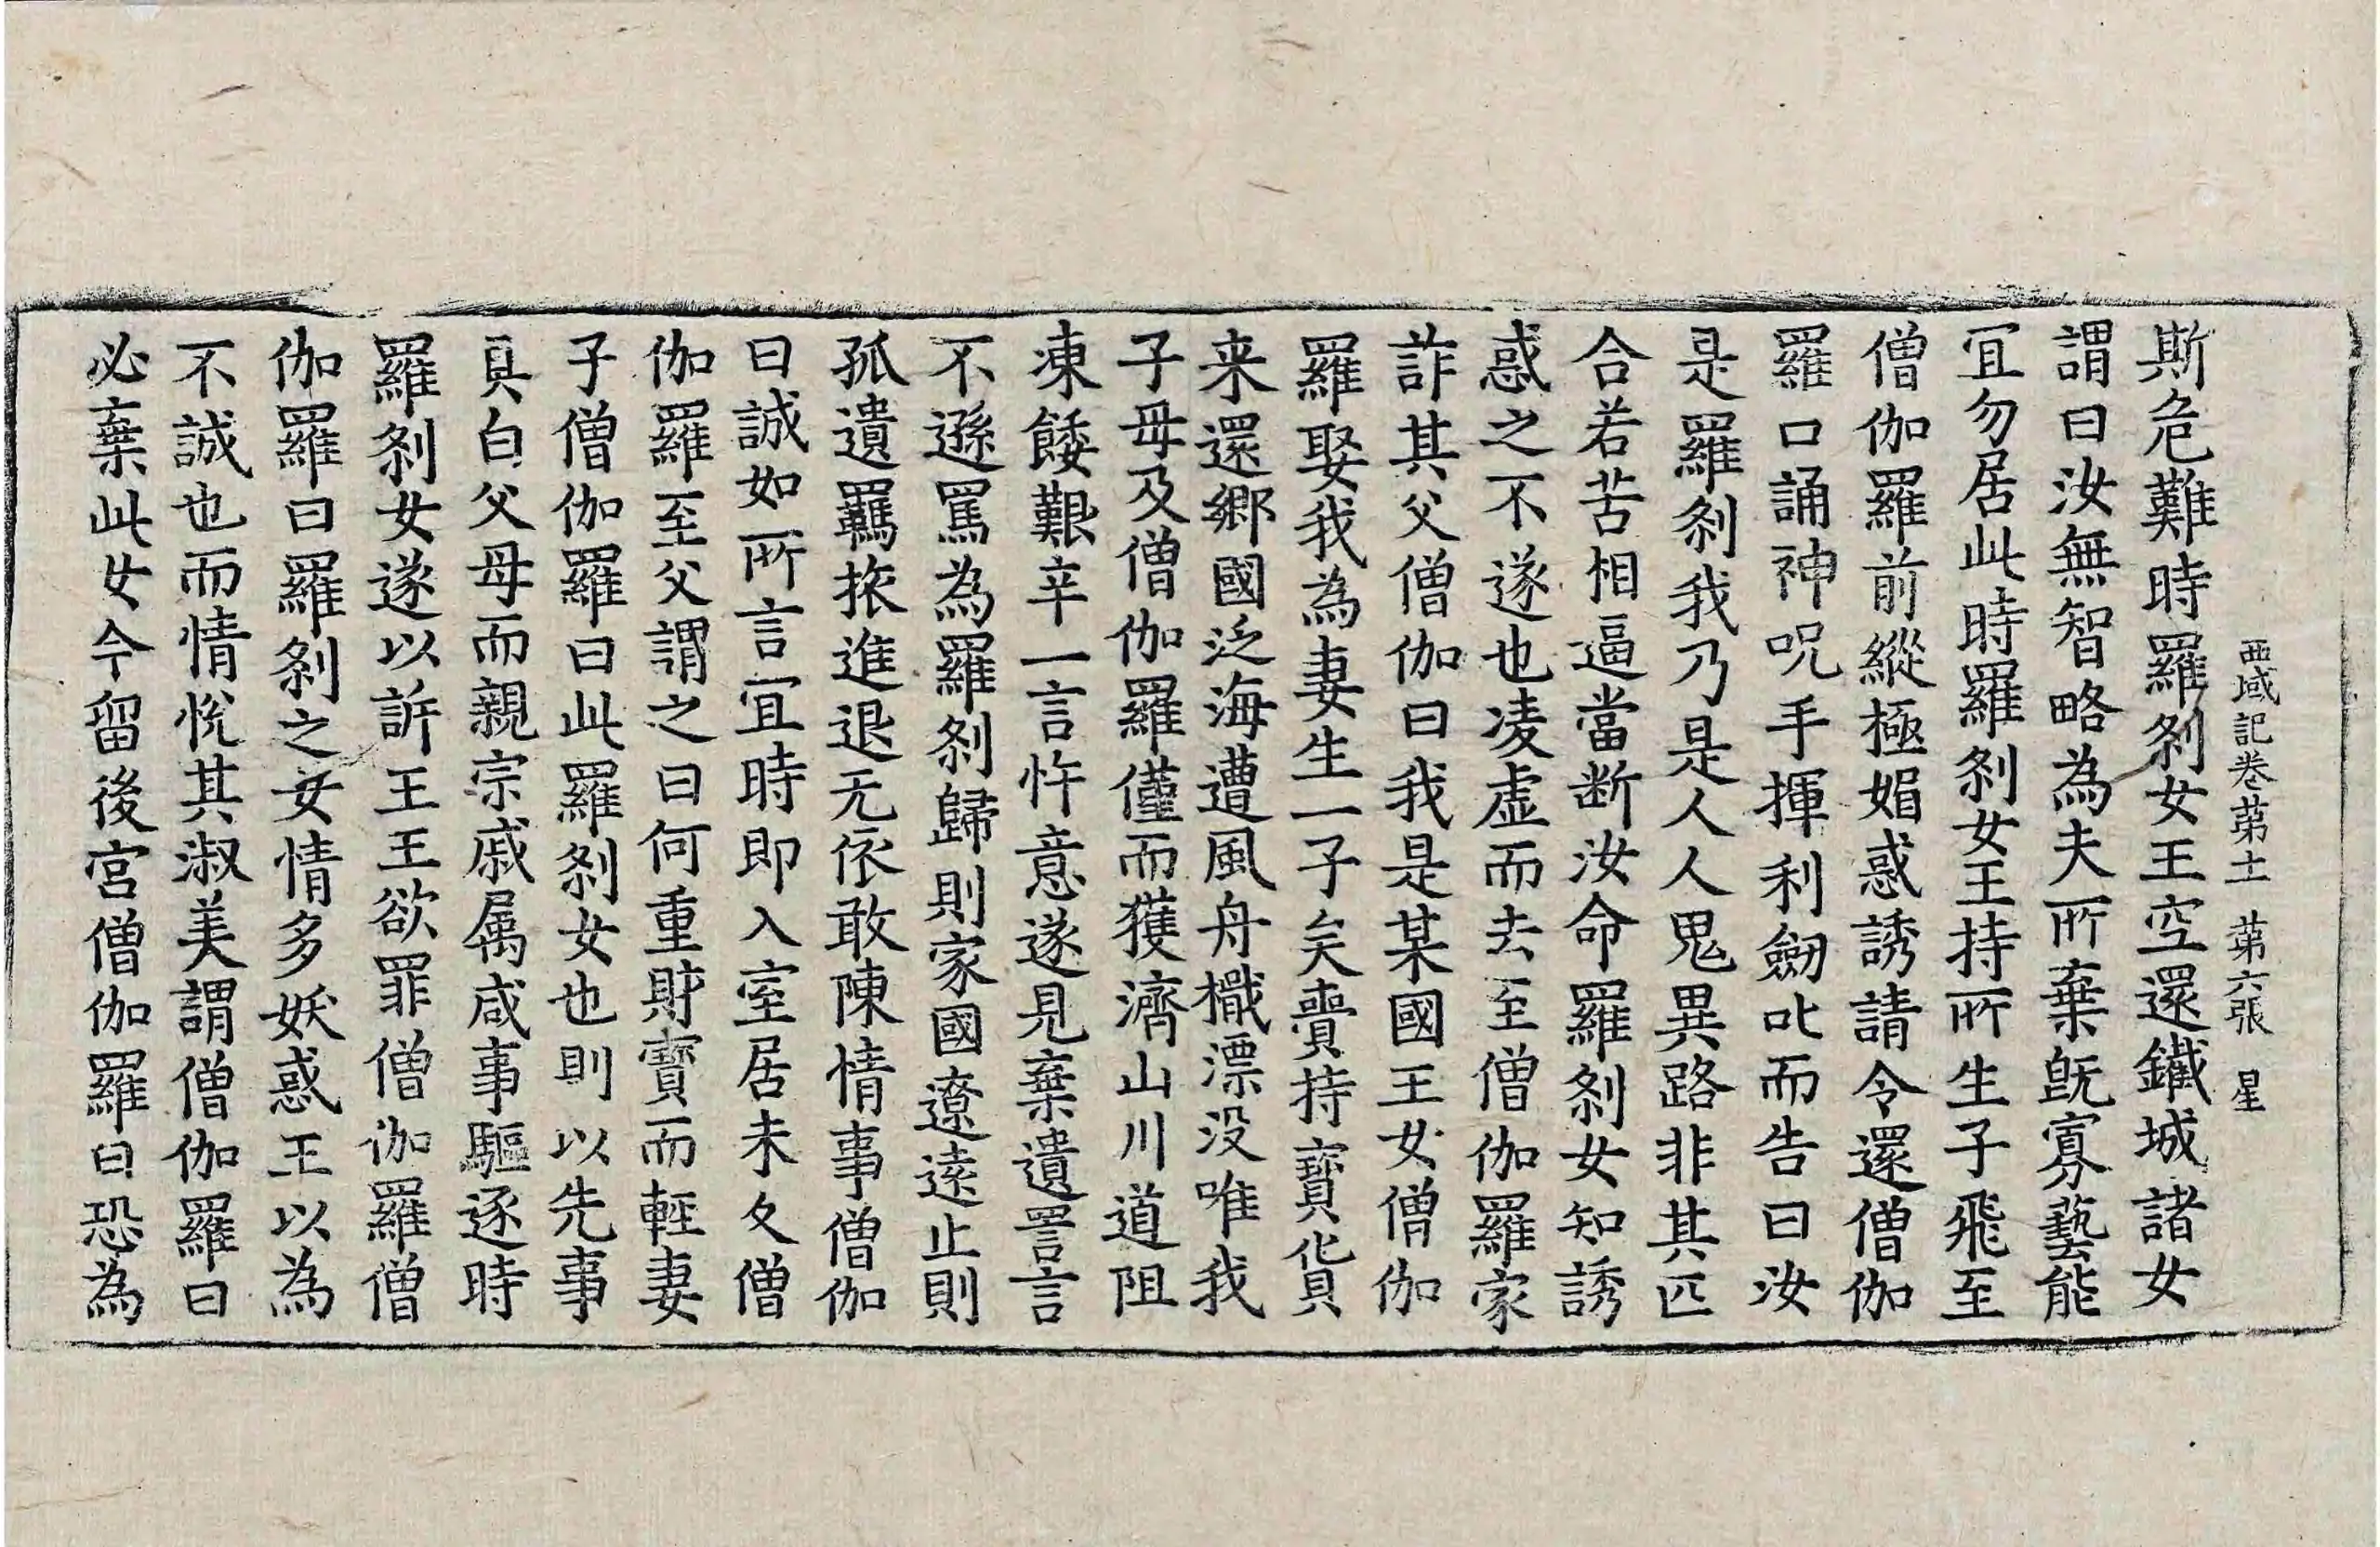 西域記卷苐十一 苐六張 星
斯危難時羅刹女王空還鐵城諸女
謂曰汝無智略為夫所棄旣寡藝能
冝勿居此時羅刹女王持所生子飛至
僧伽羅前縱極媚惑誘請令還僧伽
羅口誦神呪手揮利劒叱而告曰汝
是羅刹我乃是人人鬼異路非其匹
合若苦相逼當断汝命羅刹女知誘
惑之不遂也凌虛而去至僧伽羅家
詐其父僧伽曰我是某國王女僧伽
羅娶我為妻生一子矣賷持寶貨
来還鄉國泛海遭風舟檝漂没唯我
子母及僧伽羅僅而獲濟山川道阻
凍餧艱辛一言忤意遂見棄遺詈言
不遜罵為羅刹歸則家國遼遠止則
孤遺羈旅進退无依敢陳情事僧伽
曰誠如所言宜時即入室居未久僧
伽羅至父謂之曰何重財寶而輕妻
子僧伽羅曰此羅刹女也則以先事
具白父母而親宗戚属咸事驅逐時
羅刹女遂以訴王王欲罪僧伽羅僧
伽羅曰羅刹之女情多妖惑王以為
不誠也而情悅其淑美謂僧伽羅曰
必棄此女今留後宮僧伽羅曰恐為